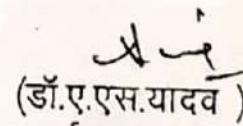 (डॉ.ए.एस.यादव )